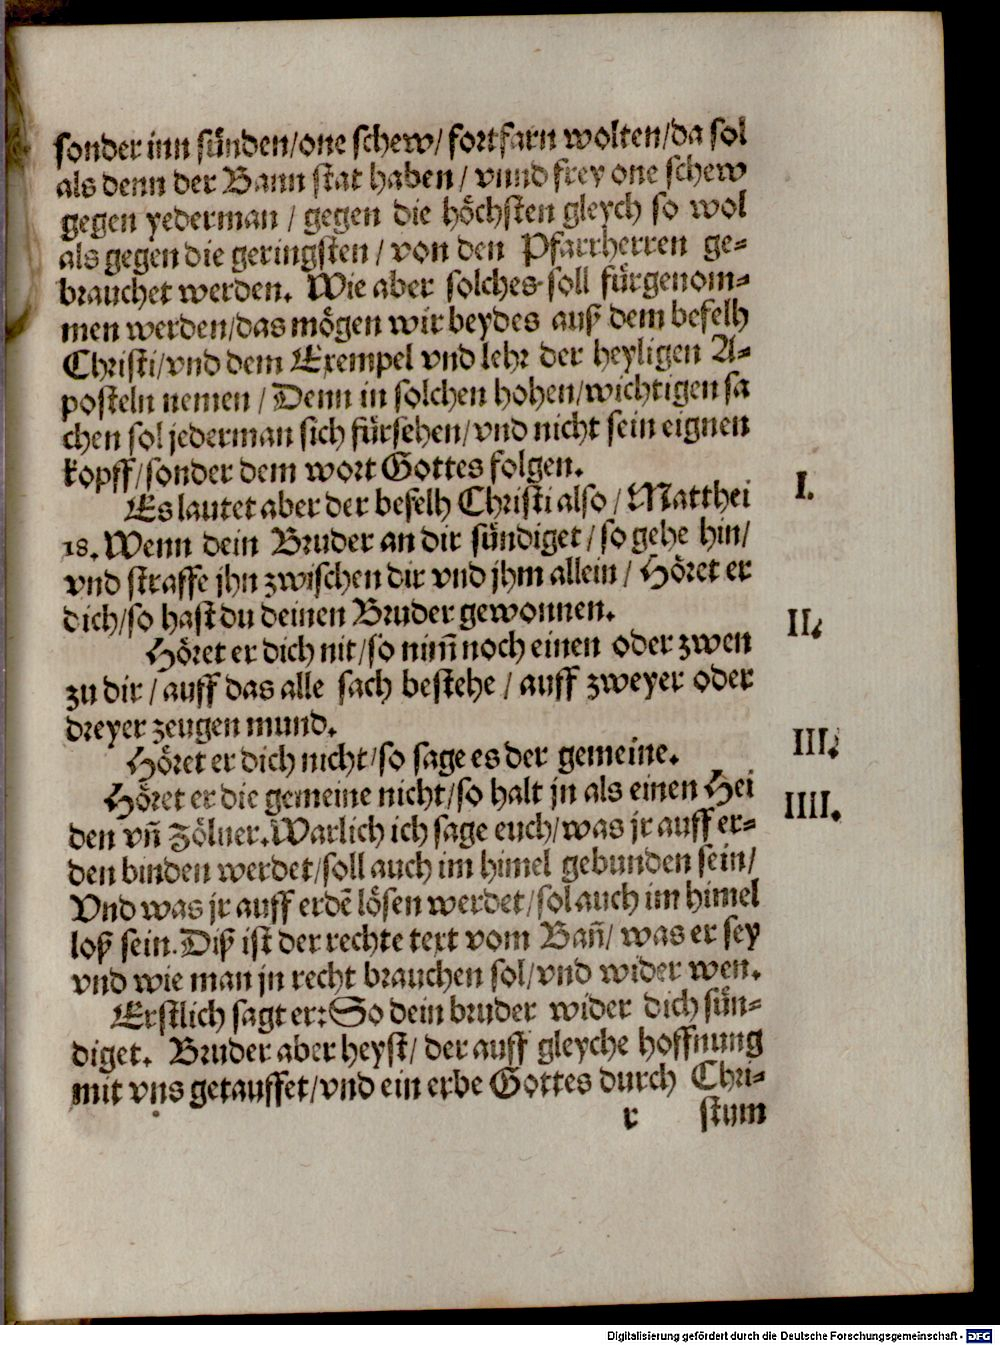 sonder inn sünden/one schew/ fortfarn wolten/da sol
als denn der Bann stat haben / vnnd frey one schew
gegen yederman / gegen die höchsten gleych so wol
als gegen die geringsten / von den Pfarrherren ge-
brauchet werden. Wie aber solches soll fürgenom-
men werden/das mögen wir beydes auß dem befelh
Christi/vnd dem Exempel vnd lehr der heyligen A-
posteln nemen / Denn in solchen hohen/wichtigen sa
chen sol jederman sich fürsehen/vnd nicht sein eignen
kopff/sonder dem wort Gottes folgen.
Es lautet aber der befelh Christi also / Matthei
I.
18. Wenn dein Bruder an dir sündiget / so gehe hin/
vnd straffe jhn zwischen dir vnd jhm allein / Höret er
dich/so hast du deinen Bruder gewonnen.
II.
Höret er dich nit/so nim̄ noch einen oder zwen
zu dir / auff das alle sach bestehe / auff zweyer oder
dreyer zeugen mund.
III.
Höret er dich nicht/so sage es der gemeine.
Höret er die gemeine nicht/so halt jn als einen Hei
IIII.
den vn̄ Zölner. Warlich ich sage euch/was jr auff er-
den binden werdet/soll auch im himel gebunden sein/
Vnd was jr auff erdē lösen werdet/sol auch im himel
loß sein. Diß ist der rechte text vom Ban̄/ was er sey
vnd wie man jn recht brauchen sol/vnd wider wen.
Erstlich sagt er: So dein bruder wider dich sün-
diget. Bruder aber heyst/ der auff gleyche hoffnung
mit vns getauffet/vnd ein erbe Gottes durch Chri-
r stum
Digitalisierung gefördert durch die Deutsche Forschungsgemeinschaft - DFG